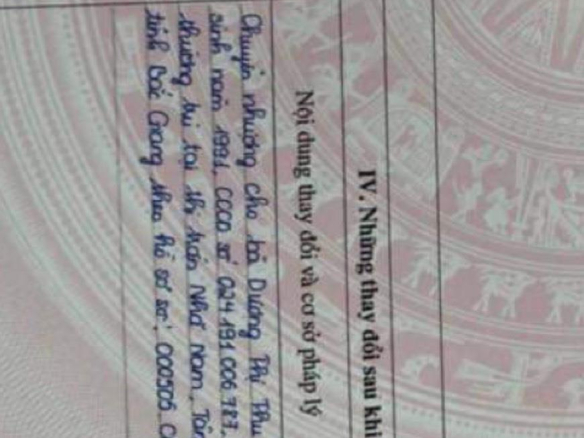 IV. Những thay đổi sau khi
Nội dung thay đổi và cơ sở pháp lý
Chuyển nhượng cho bà Dương Thị Thu
sinh năm 1991, CCCD số 024 191 006 787,
thường trú tại thị trấn Nhã Nam, Tân
tỉnh Bắc Giang theo hồ sơ số: 000505